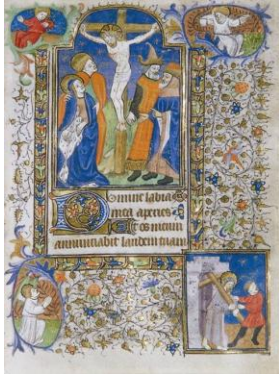 Domine labia
mea aperies
et os meum
annunciabit laudem tuam